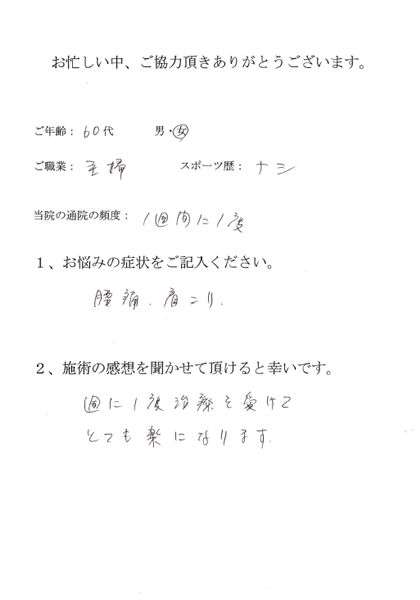 お忙しい中、ご協力頂きありがとうございます。
ご年齢：60代　男・女
ご職業：主婦　スポーツ歴：ナシ
当院の通院の頻度：1週間に1度
1、お悩みの症状をご記入ください。
腰痛、肩こり、
2、施術の感想を聞かせて頂けると幸いです。
週に1度治療を受けて
とても楽になります。